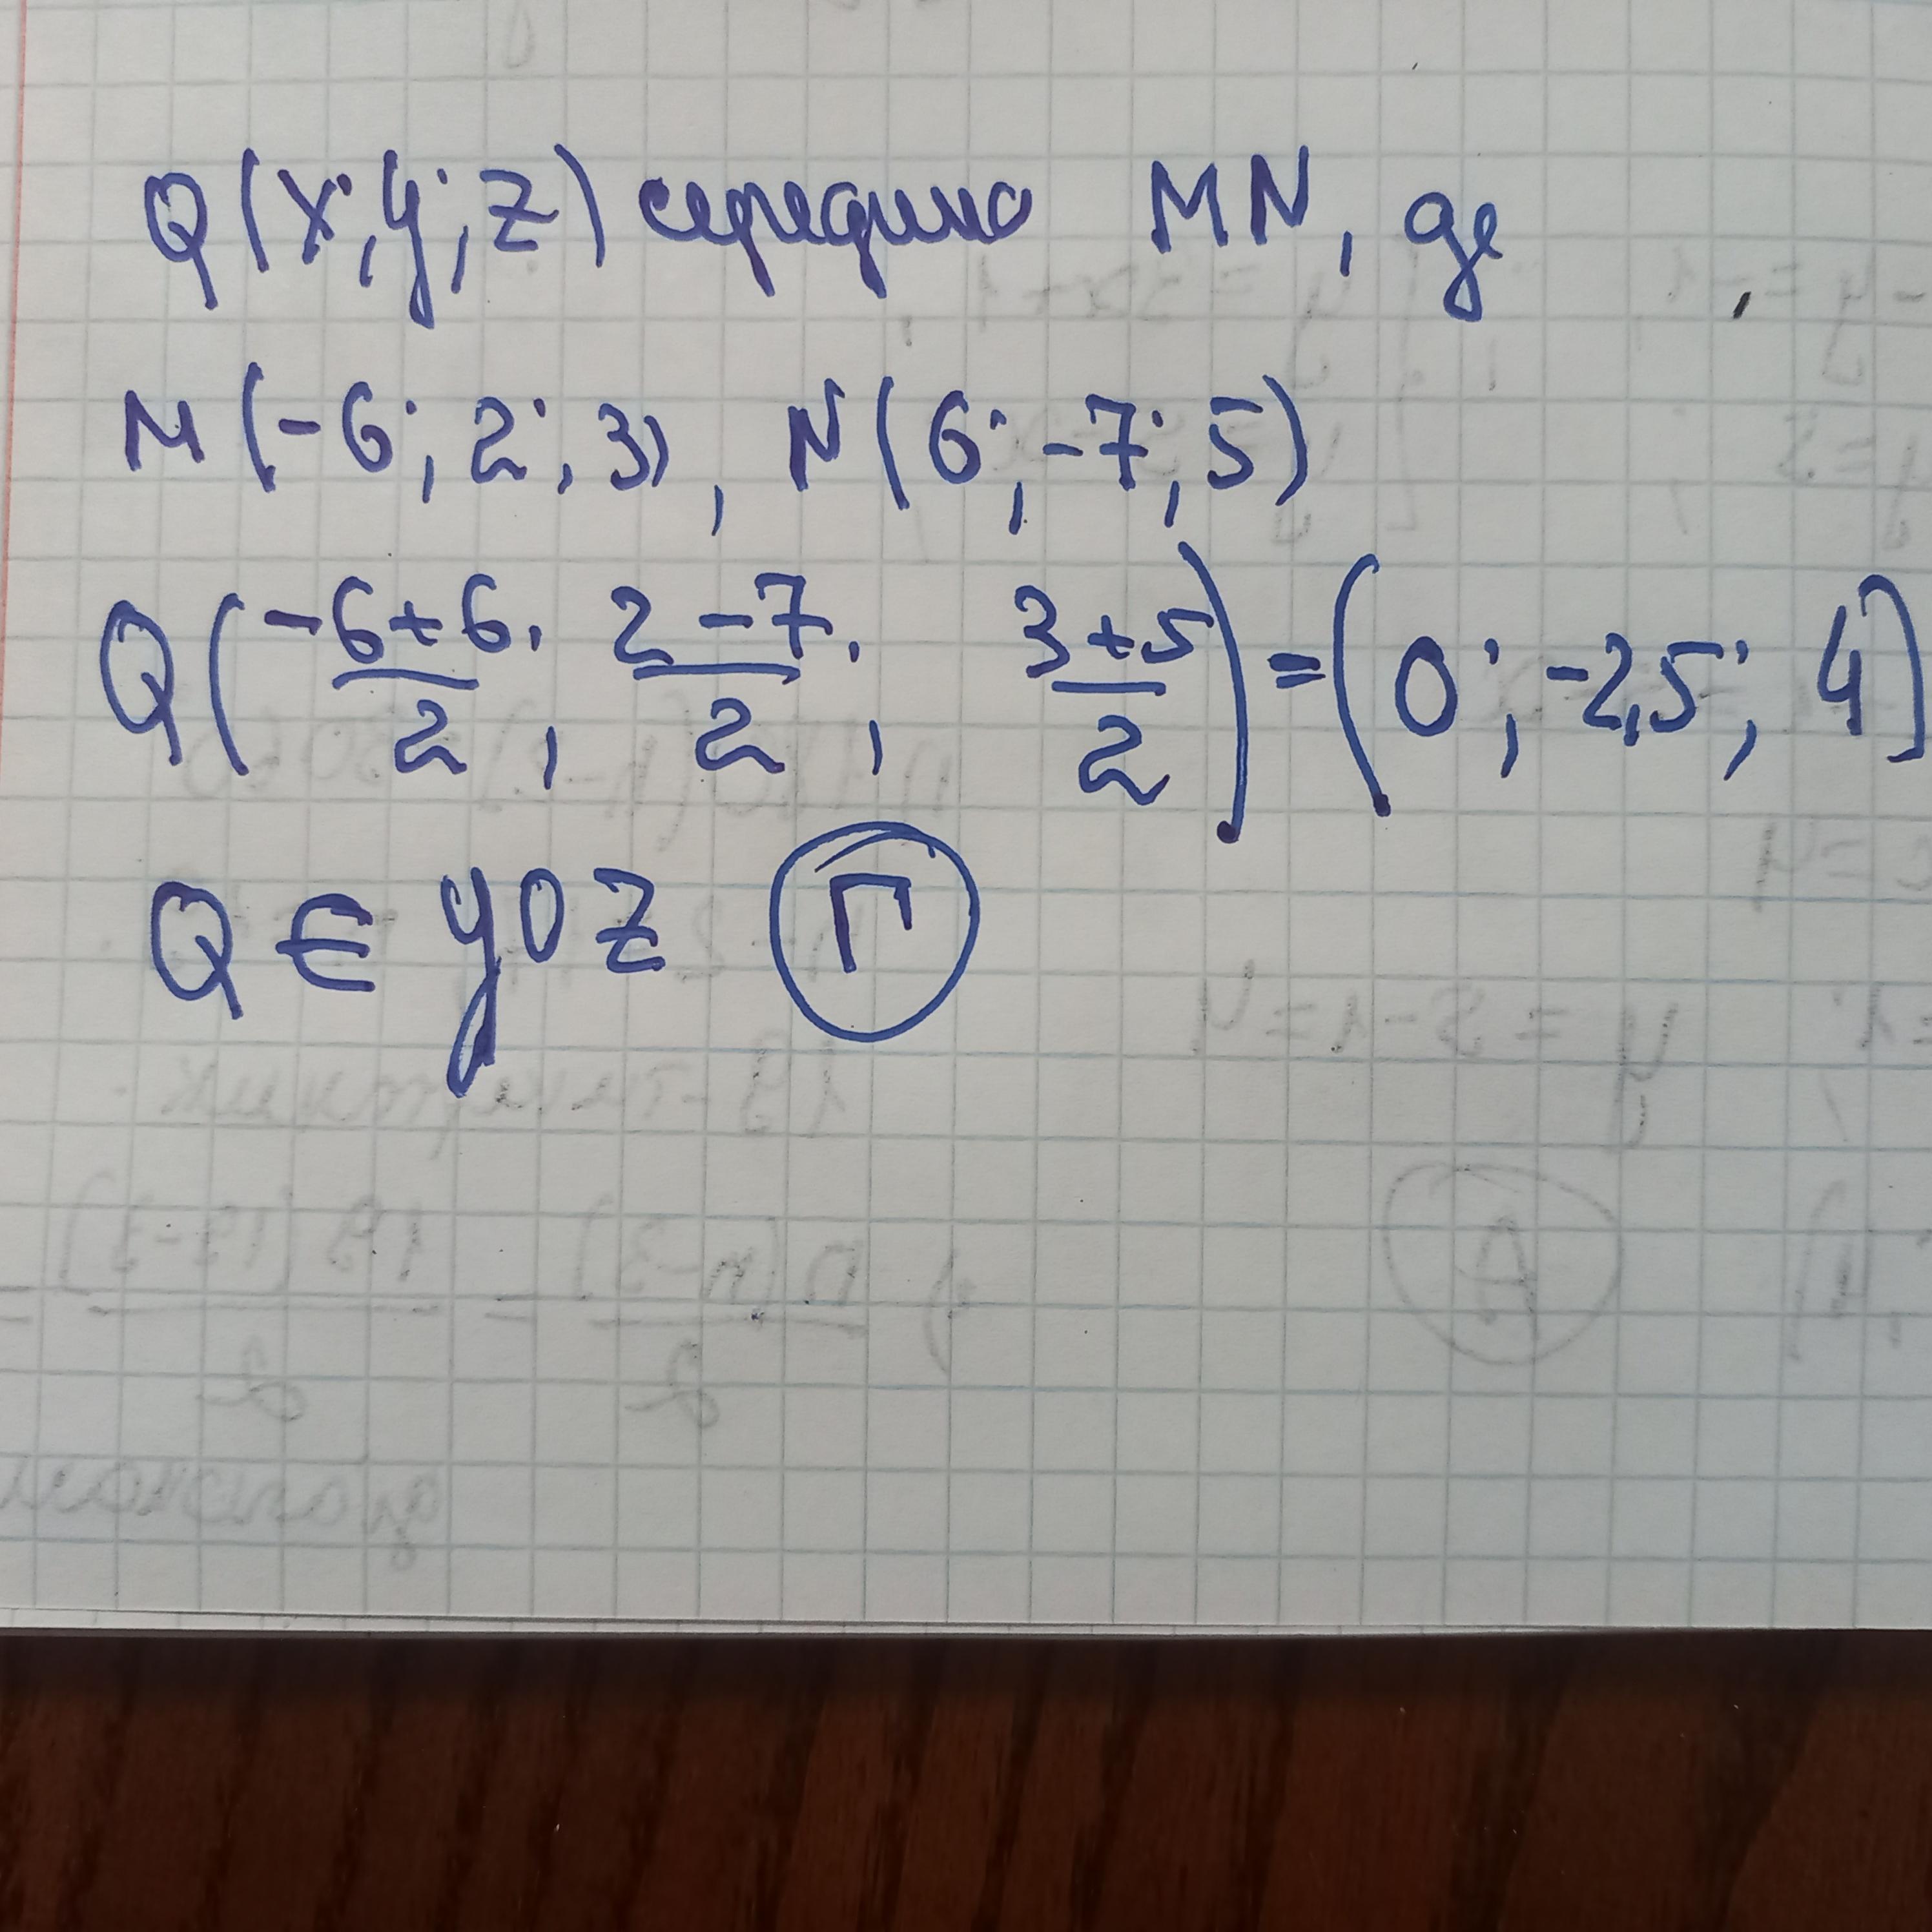 Q(x; y; z) середина MN, де
M(-6; 2; 3), N(6; -7; 5)
Q(-6+6/2; 2-7/2; 3+5/2) = (0; -2,5; 4)
Q ∈ yOz Г